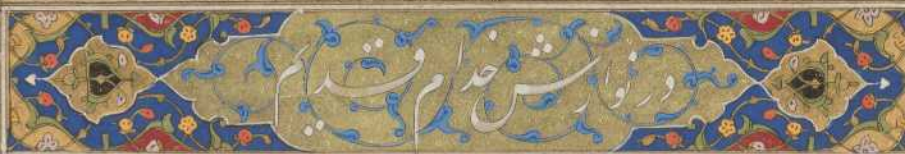 در نوازش خدام قدیم